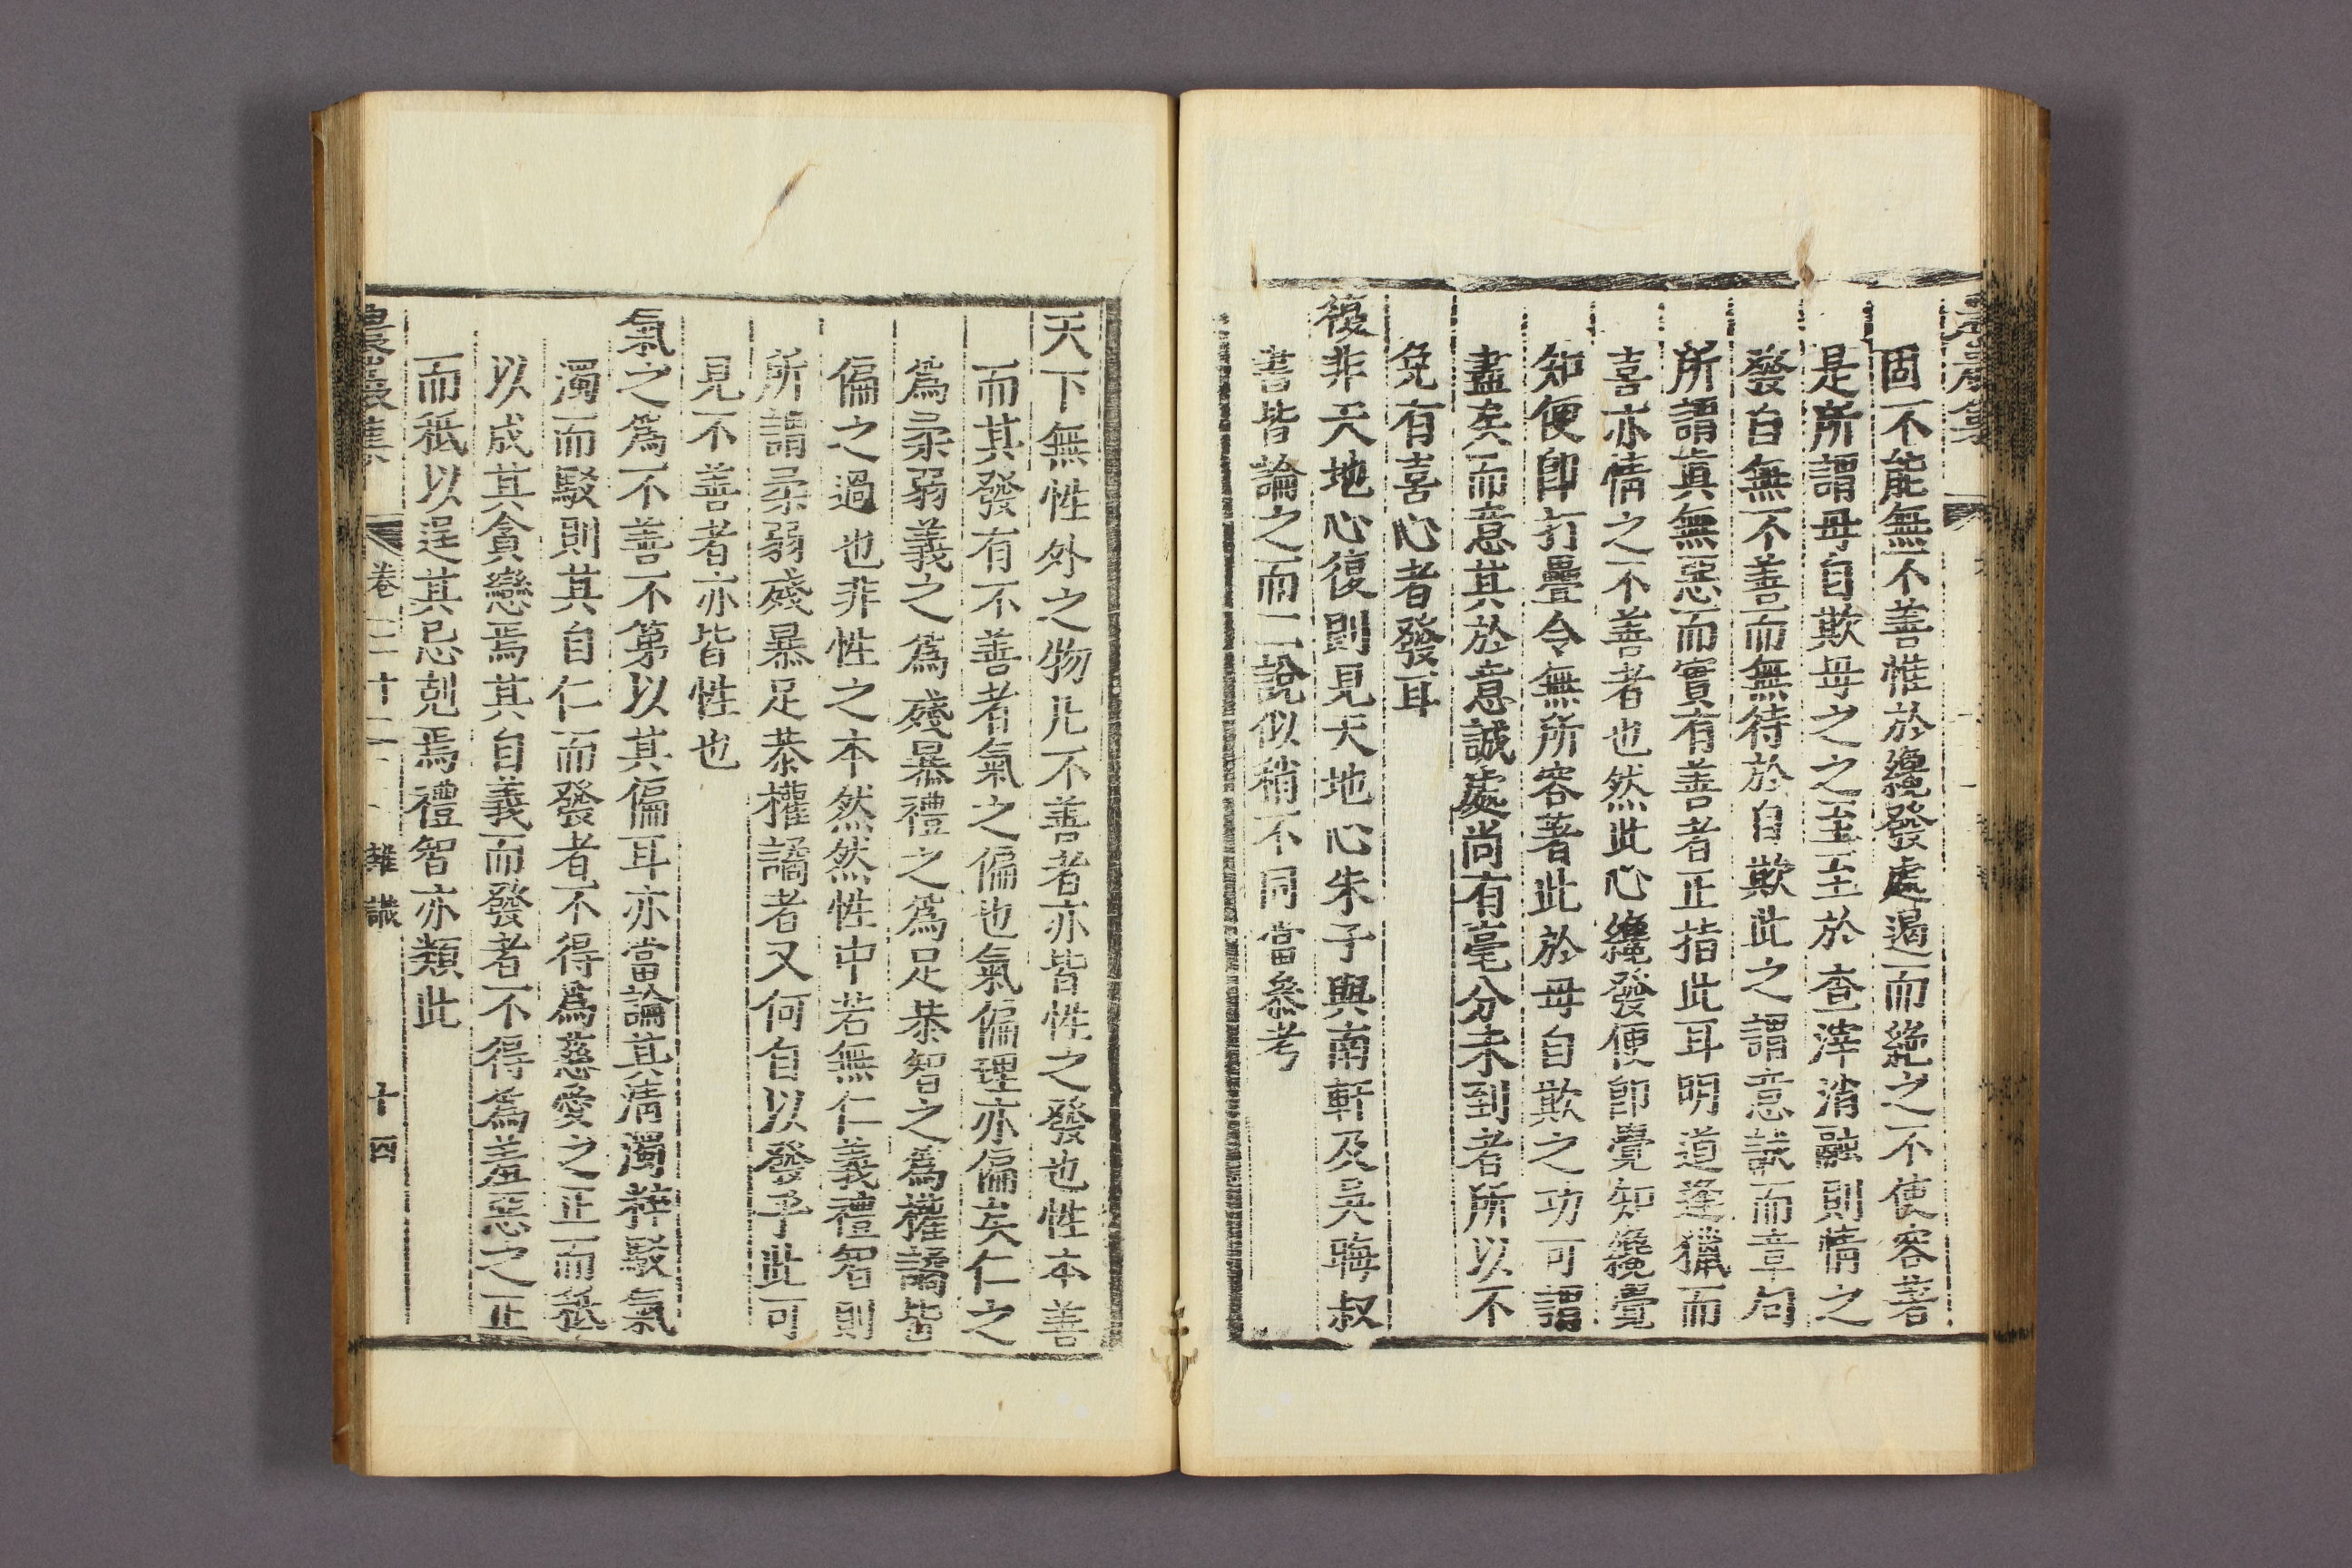 固不能無不善惟於纔發處遏而絶之不使容著
是所謂毋自欺毋之之至至於査滓消融則情之
發自無不善而無待於自欺此之謂意誠而章句
所謂眞無惡而實有善者正指此耳明道逢獵而
喜亦情之不善者也然此心纔發便卽覺知纔覺
知便卽打疊令無所容著此於毋自欺之功可謂
盡矣而意其於意誠處尚有毫分未到者所以不
免有喜心者發耳
復非天地心復則見天地心朱子與南軒及吳晦叔
書皆論之而二說似稍不同當叅考
天下無性外之物凡不善者亦皆性之發也性本善
而其發有不善者氣之偏也氣偏理亦偏矣仁之
爲柔弱義之爲殘暴禮之爲足恭智之爲權譎皆
偏之過也非性之本然然性中若無仁義禮智則
所謂柔弱殘暴足恭權譎者又何自以發乎此可
見不善者亦皆性也
氣之爲不善不第以其偏耳亦當論其淸濁粹駁氣
濁而駁則其自仁而發者不得爲慈愛之正而秪
以成其貪戀焉其自義而發者不得爲羞惡之正
而秪以逞其忌剋焉禮智亦類此
農巖集 卷三十二 雜識 十四